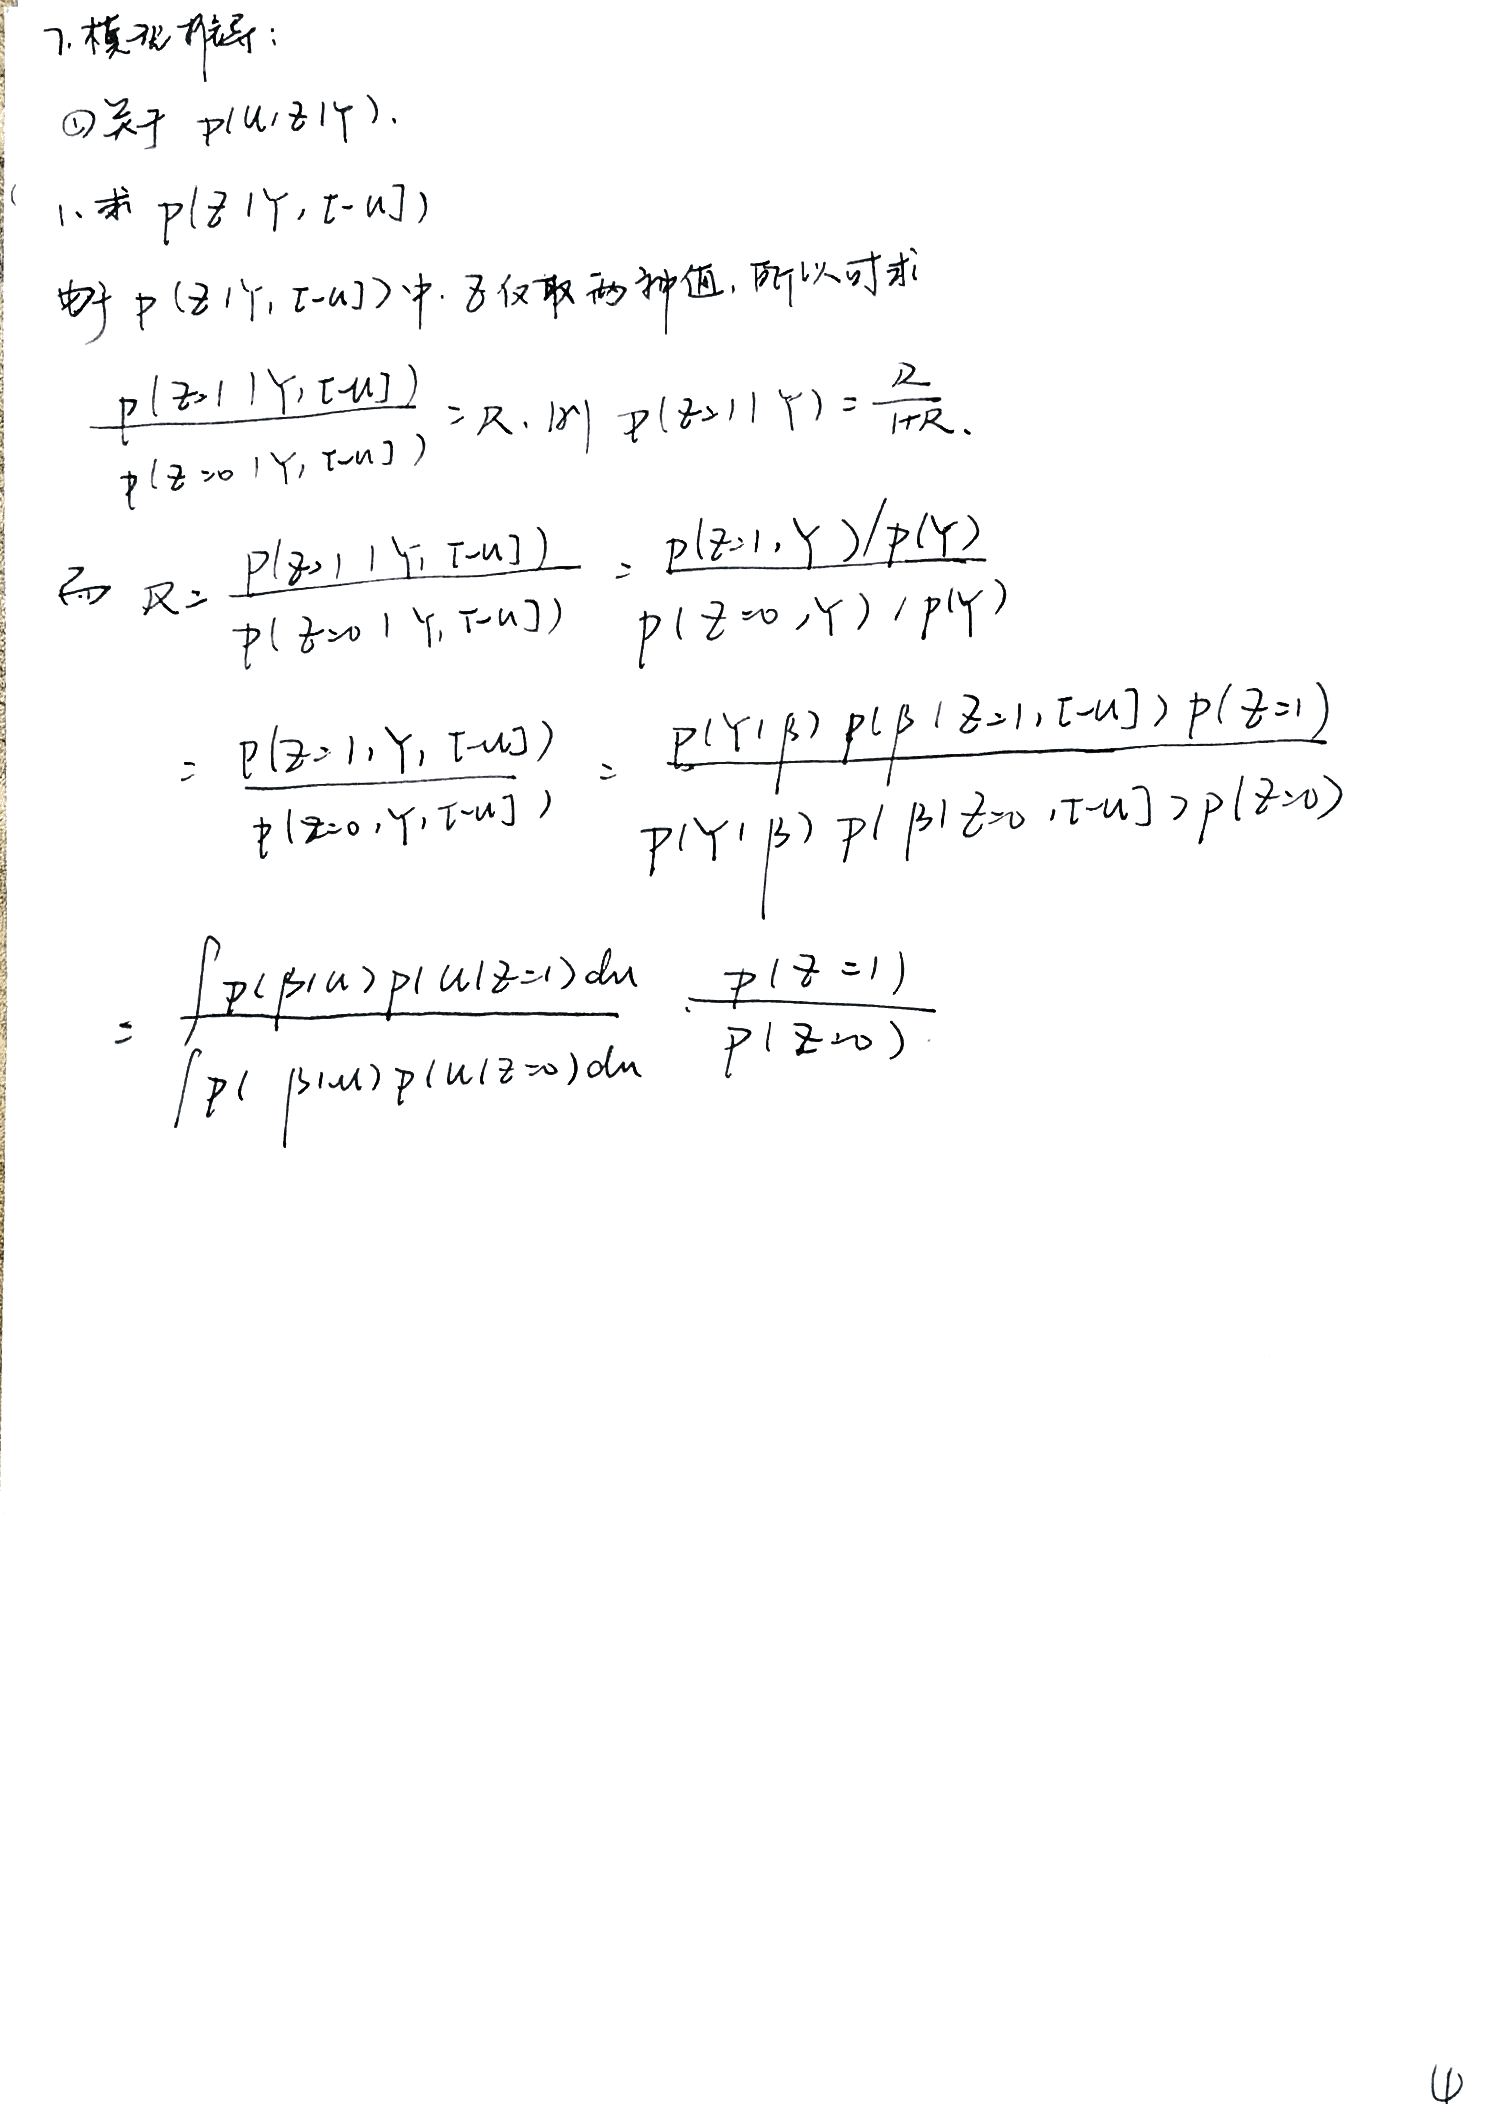 7. 模型推导:
① 关于 p(u, z | Y).
1、求 p(z | Y, [-u])
由于 p(z | Y, [-u]) 中. z 仅取两种值, 所以可求
p(z=1 | Y, [-u]) / p(z=0 | Y, [-u]) = R. 则 p(z=1 | Y) = R / 1+R.
而 R = p(z=1 | Y, [-u]) / p(z=0 | Y, [-u]) = p(z=1, Y) / p(Y) / p(z=0, Y) / p(Y)
= p(z=1, Y, [-u]) / p(z=0, Y, [-u]) = p(Y | β) p(β | z=1, [-u]) p(z=1) / p(Y | β) p(β | z=0, [-u]) p(z=0)
= ∫ p(β | u) p(u | z=1) du / ∫ p(β | u) p(u | z=0) du · p(z=1) / p(z=0)